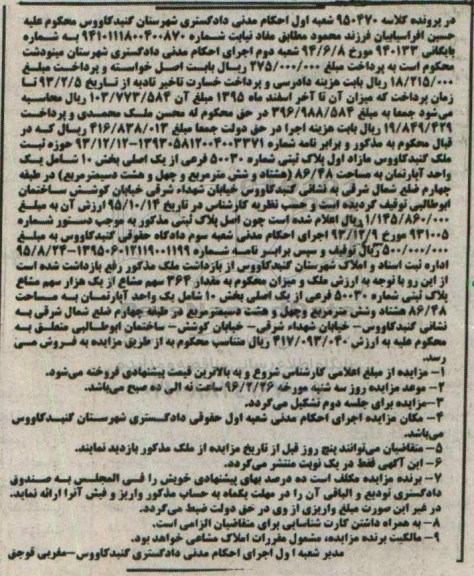 در پرونده کلاسه ۹۵۰۴۷۰ شعبه اول احکام مدنی دادگستری شهرستان گنبدکاووس محکوم علیه
حسین افراسیابیان فرزند محمود مطابق مفاد نیابت شماره ۹۴۱۰۱۱۱۸۰۰۴۰۰۸۷۰ به شماره
بایگانی ۹۴۰۱۳۳ مورخ ۹۴/۶/۸ شعبه دوم اجرای احکام مدنی دادگستری شهرستان مینودشت
محکوم است به پرداخت مبلغ ۲۷۵/۰۰۰/۰۰۰ ریال بابت اصل خواسته و پرداخت مبلغ
۱۸/۲۱۵/۰۰۰ ریال بابت هزینه دادرسی و پرداخت خسارت تاخیر تادیه از تاریخ ۹۳/۲/۵ تا
زمان پرداخت که میزان آن تا آخر اسفند ماه ۱۳۹۵ مبلغ آن ۱۰۳/۷۷۳/۵۸۴ ریال محاسبه
می‌شود جمعا به مبلغ ۳۹۶/۹۸۸/۵۸۴ در حق محکوم له محسن ملک محمدی و پرداخت
۱۹/۸۴۹/۴۲۹ ریال بابت هزینه اجرا در حق دولت جمعا مبلغ ۴۱۶/۸۳۸/۰۱۳ ریال که در
قبال محکوم به مذکور و برابر نامه شماره ۱۳۹۳۰۵۸۱۲۰۰۴۰۰۳۳۷۱-۹۳/۱۲/۱۲ حوزه ثبت
ملک گنبدکاووس مازاد اول پلاک ثبتی شماره ۵۰۰۳۰ فرعی از یک اصلی بخش ۱۰ شامل یک
واحد آپارتمان به مساحت ۸۶/۴۸ (هشتاد و شش مترمربع و چهل و هشت دسیمترمربع) در طبقه
چهارم ضلع شمال شرقی به نشانی گنبدکاووس خیابان شهداء شرقی خیابان کوشش ساختمان
ابوطالبی توقیف گردیده است و حسب نظریه کارشناس در تاریخ ۹۵/۱۰/۱۴ ارزش آن به مبلغ
۱/۱۴۵/۸۶۰/۰۰۰ ریال اعلام شده است چون اصل پلاک ثبتی مذکور به موجب دستور شماره
۹۳۱۰۰۵ مورخ ۹۳/۱۲/۹ اجرای احکام مدنی شعبه سوم دادگاه حقوقی گنبدکاووس به مبلغ
۵۰۰/۰۰۰/۰۰۰ ریال توقیف و سپس برابر نامه شماره ۱۳۹۵۰۶۰۱۲۱۱۹۰۰۱۱۹۹-۹۵/۸/۲۴
اداره ثبت اسناد و املاک شهرستان گنبدکاووس از بازداشت ملک مذکور رفع بازداشت شده است
از این رو با توجه به ارزش ملک و میزان محکوم به مقدار ۳۶۴ سهم مشاع از یک هزار سهم مشاع
پلاک ثبتی شماره ۵۰۰۳۰ فرعی از یک اصلی بخش ۱۰ شامل یک واحد آپارتمان به مساحت
۸۶/۴۸ هشتاد وشش مترمربع وچهل و هشت دسیمترمربع در طبقه چهارم ضلع شمال شرقی به
نشانی گنبدکاووس- خیابان شهداء شرقی- خیابان کوشش- ساختمان ابوطالبی متعلق به
محکوم علیه به ارزش ۴۱۷/۰۹۳/۰۴۰ ریال متناسب محکوم به از طریق مزایده به فروش می
رسد.
۱- مزایده از مبلغ اعلامی کارشناس شروع و به بالاترین قیمت پیشنهادی فروخته می‌شود.
۲- موعد مزایده روز سه شنبه مورخه ۹۶/۲/۲۶ ساعت نه الی ده صبح می‌باشد.
۳-مزایده برای جلسه دوم تشکیل می‌گردد.
۴- مکان مزایده اجرای احکام مدنی شعبه اول حقوقی دادگستری شهرستان گنبدکاووس
می‌باشد.
۵- متقاضیان می‌توانند پنج روز قبل از تاریخ مزایده از ملک مذکور بازدید نمایند.
۶- این آگهی فقط در یک نوبت منتشر می‌گردد.
۷- برنده مزایده مکلف است ده درصد بهای پیشنهادی خویش را فی المجلس به صندوق
دادگستری تودیع و الباقی آن را در مهلت یکماه به حساب مذکور واریز و فیش آنرا ارائه نماید.
در غیر این صورت مبلغ واریزی از وی در حق دولت ضبط می‌گردد.
۸- به همراه داشتن کارت شناسایی برای متقاضیان الزامی است.
۹- مالکیت برنده مزایده، مشمول مقررات املاک مشاعی خواهد بود.
مدیر شعبه ا ول اجرای احکام مدنی دادگستری گنبدکاووس-مقریی قوجق